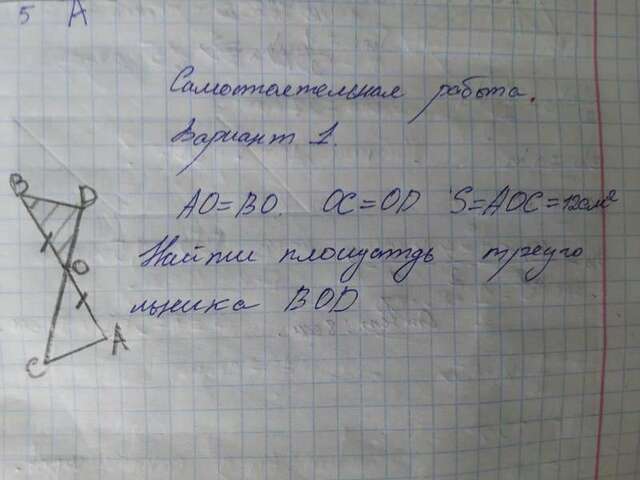 5 А
Самостоятельная работа.
Вариант 1.
AO=BO. OC=OD S=AOC=12см²
Найти площадь треуго
льника BOD
B
D
O
A
C